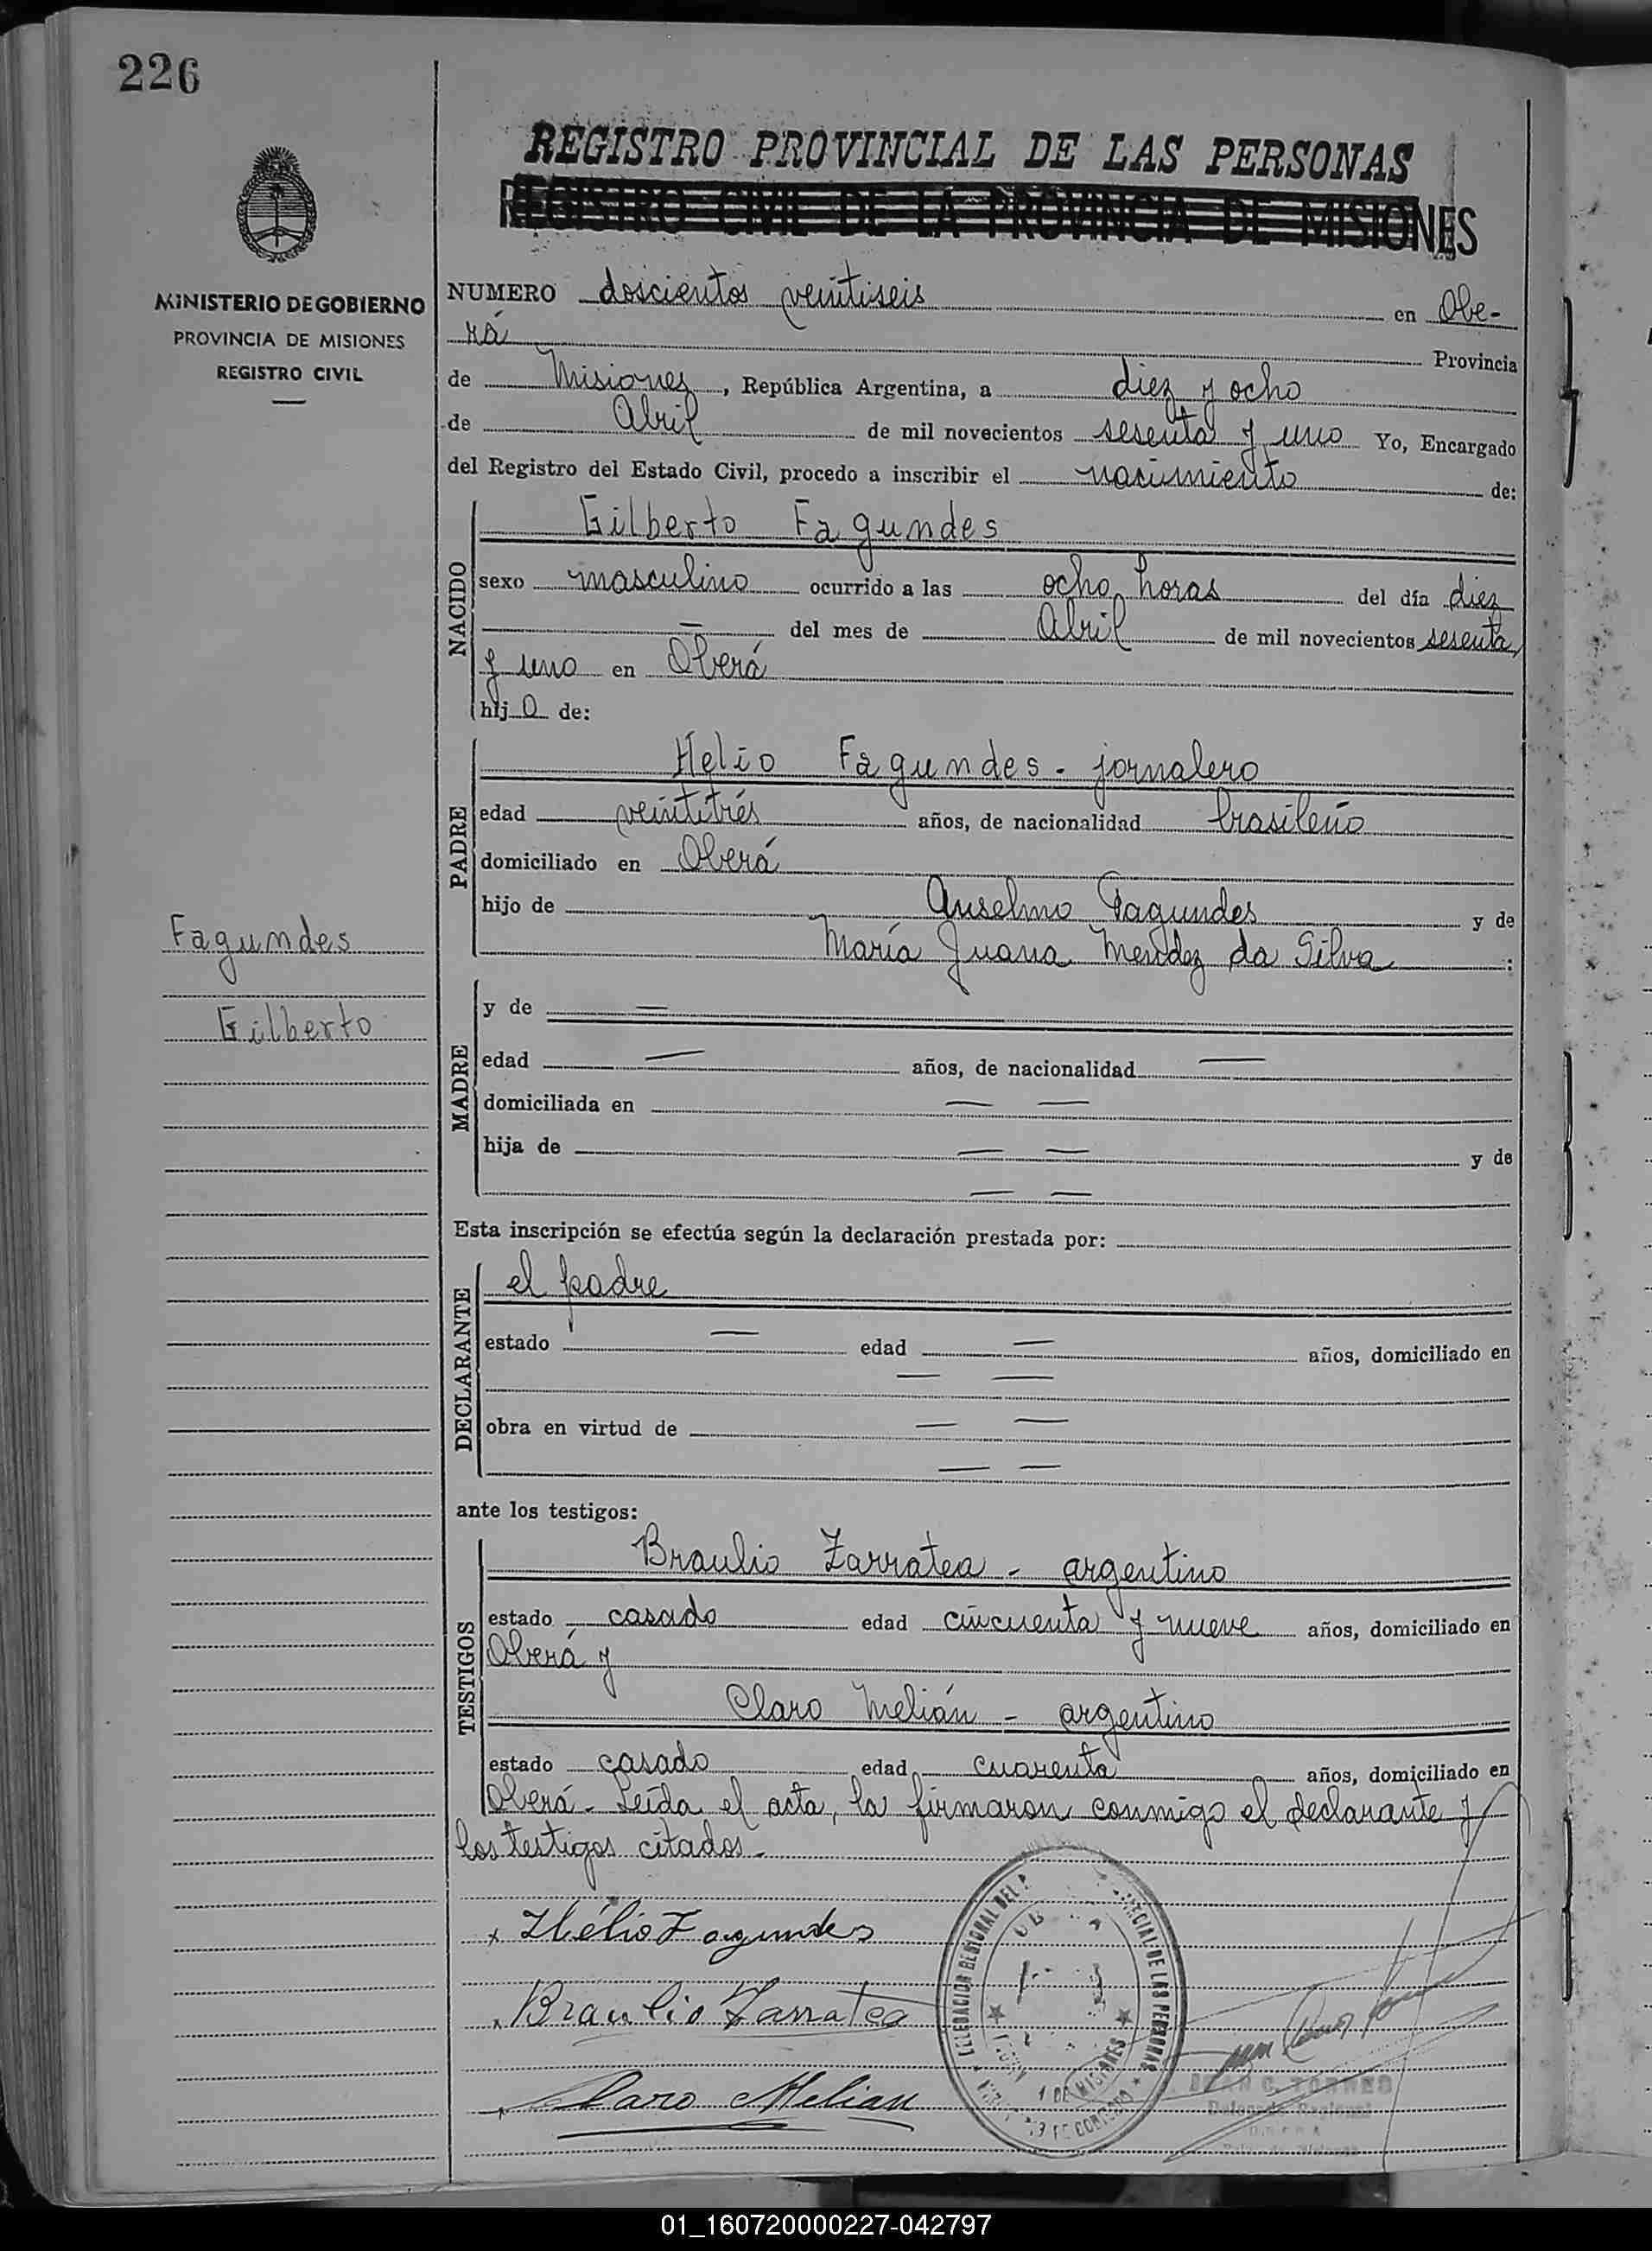 226
REGISTRO PROVINCIAL DE LAS PERSONAS
REGISTRO CIVIL DE LA PROVINCIA DE MISIONES
MINISTERIO DE GOBIERNO
PROVINCIA DE MISIONES
REGISTRO CIVIL
NUMERO doscientos veintiseis en Obe-
rá Provincia
de Misiones, República Argentina, a diez y ocho
de Abril de mil novecientos sesenta y uno Yo, Encargado
del Registro del Estado Civil, procedo a inscribir el nacimiento de:
NACIDO
Gilberto Fagundes
sexo masculino ocurrido a las ocho horas del día diez
— del mes de Abril de mil novecientos sesenta
y uno en Oberá
hijo de:
PADRE
Helio Fagundes - jornalero
edad veintitrés años, de nacionalidad brasileño
domiciliado en Oberá
hijo de Anselmo Fagundes y de
María Juana Mendez da Silva :
Fagundes
Gilberto
MADRE
y de —
edad — años, de nacionalidad —
domiciliada en — —
hija de — — y de
— —
Esta inscripción se efectúa según la declaración prestada por:
DECLARANTE
el padre
estado — edad — años, domiciliado en
— —
obra en virtud de — —
— —
ante los testigos:
TESTIGOS
Braulio Zarratea - argentino
estado casado edad cincuenta y nueve años, domiciliado en
Oberá y
Claro Melián - argentino
estado casado edad cuarenta años, domiciliado en
Oberá - Leída el acta, la firmaron conmigo el declarante y
los testigos citados.-
x Hélio Fagundes
x Braulio Zarratea
x Claro Melian
DELEGACION REGIONAL DEL
DE LAS PERSONAS
DE MISIONES
JUAN C. TORRES
Delegado Regional
01_160720000227-042797